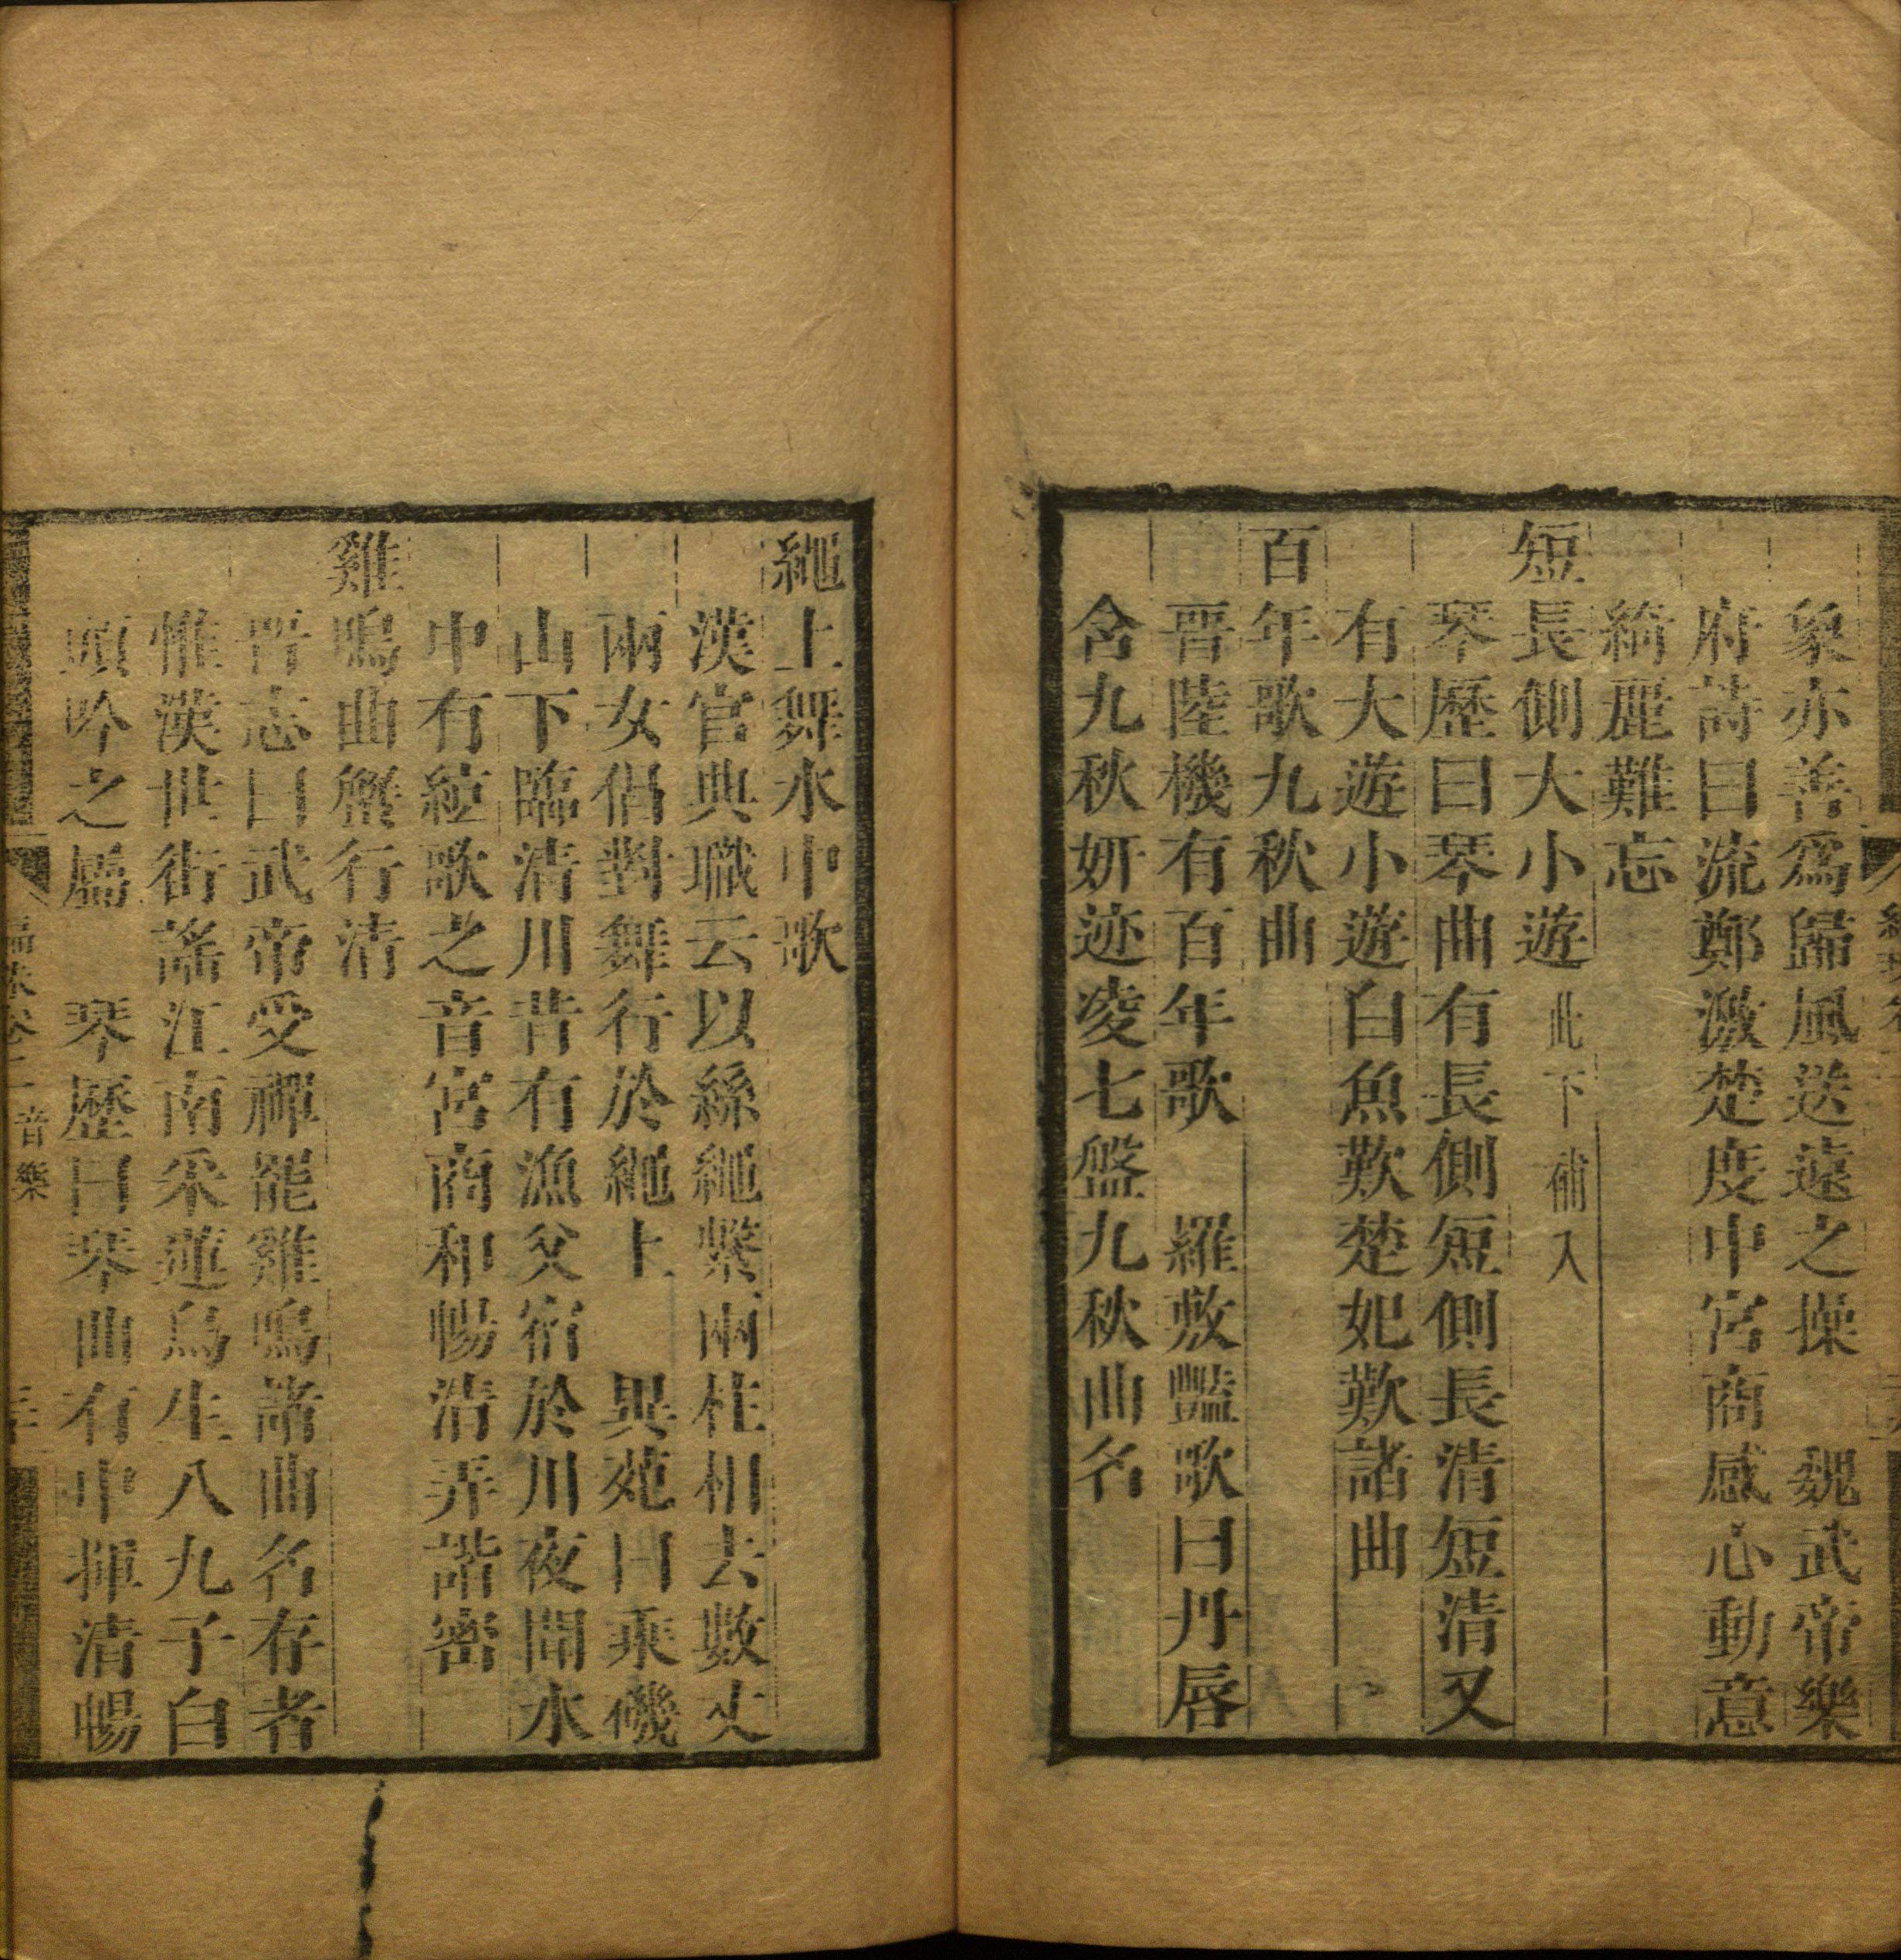 象亦善爲歸風送遠之操　魏武帝樂
府詩曰流鄭激楚度中宮商感心動意
綺麗難忘
短長側大小遊此下補入
琴歷曰琴曲有長側短側長清短清又
有大遊小遊白魚歎楚妃歎諸曲
百年歌九秋曲
晋陸機有百年歌　羅敷豔歌曰丹唇
含九秋妍迹凌七盤九秋曲名
繩上舞水中歌
漢官典職云以絲繩繫兩柱相去數丈
兩女倡對舞行於繩上　異苑曰乘磯
山下臨清川昔有漁父宿於川夜聞水
中有絃歌之音宮商和暢清弄諧密
雞鳴曲　行清
晋志曰武帝受禪罷雞鳴諸曲名存者
惟漢世街謠江南采蓮烏生八九子白
頭吟之屬　琴歷曰琴曲有中揮清暢
音樂